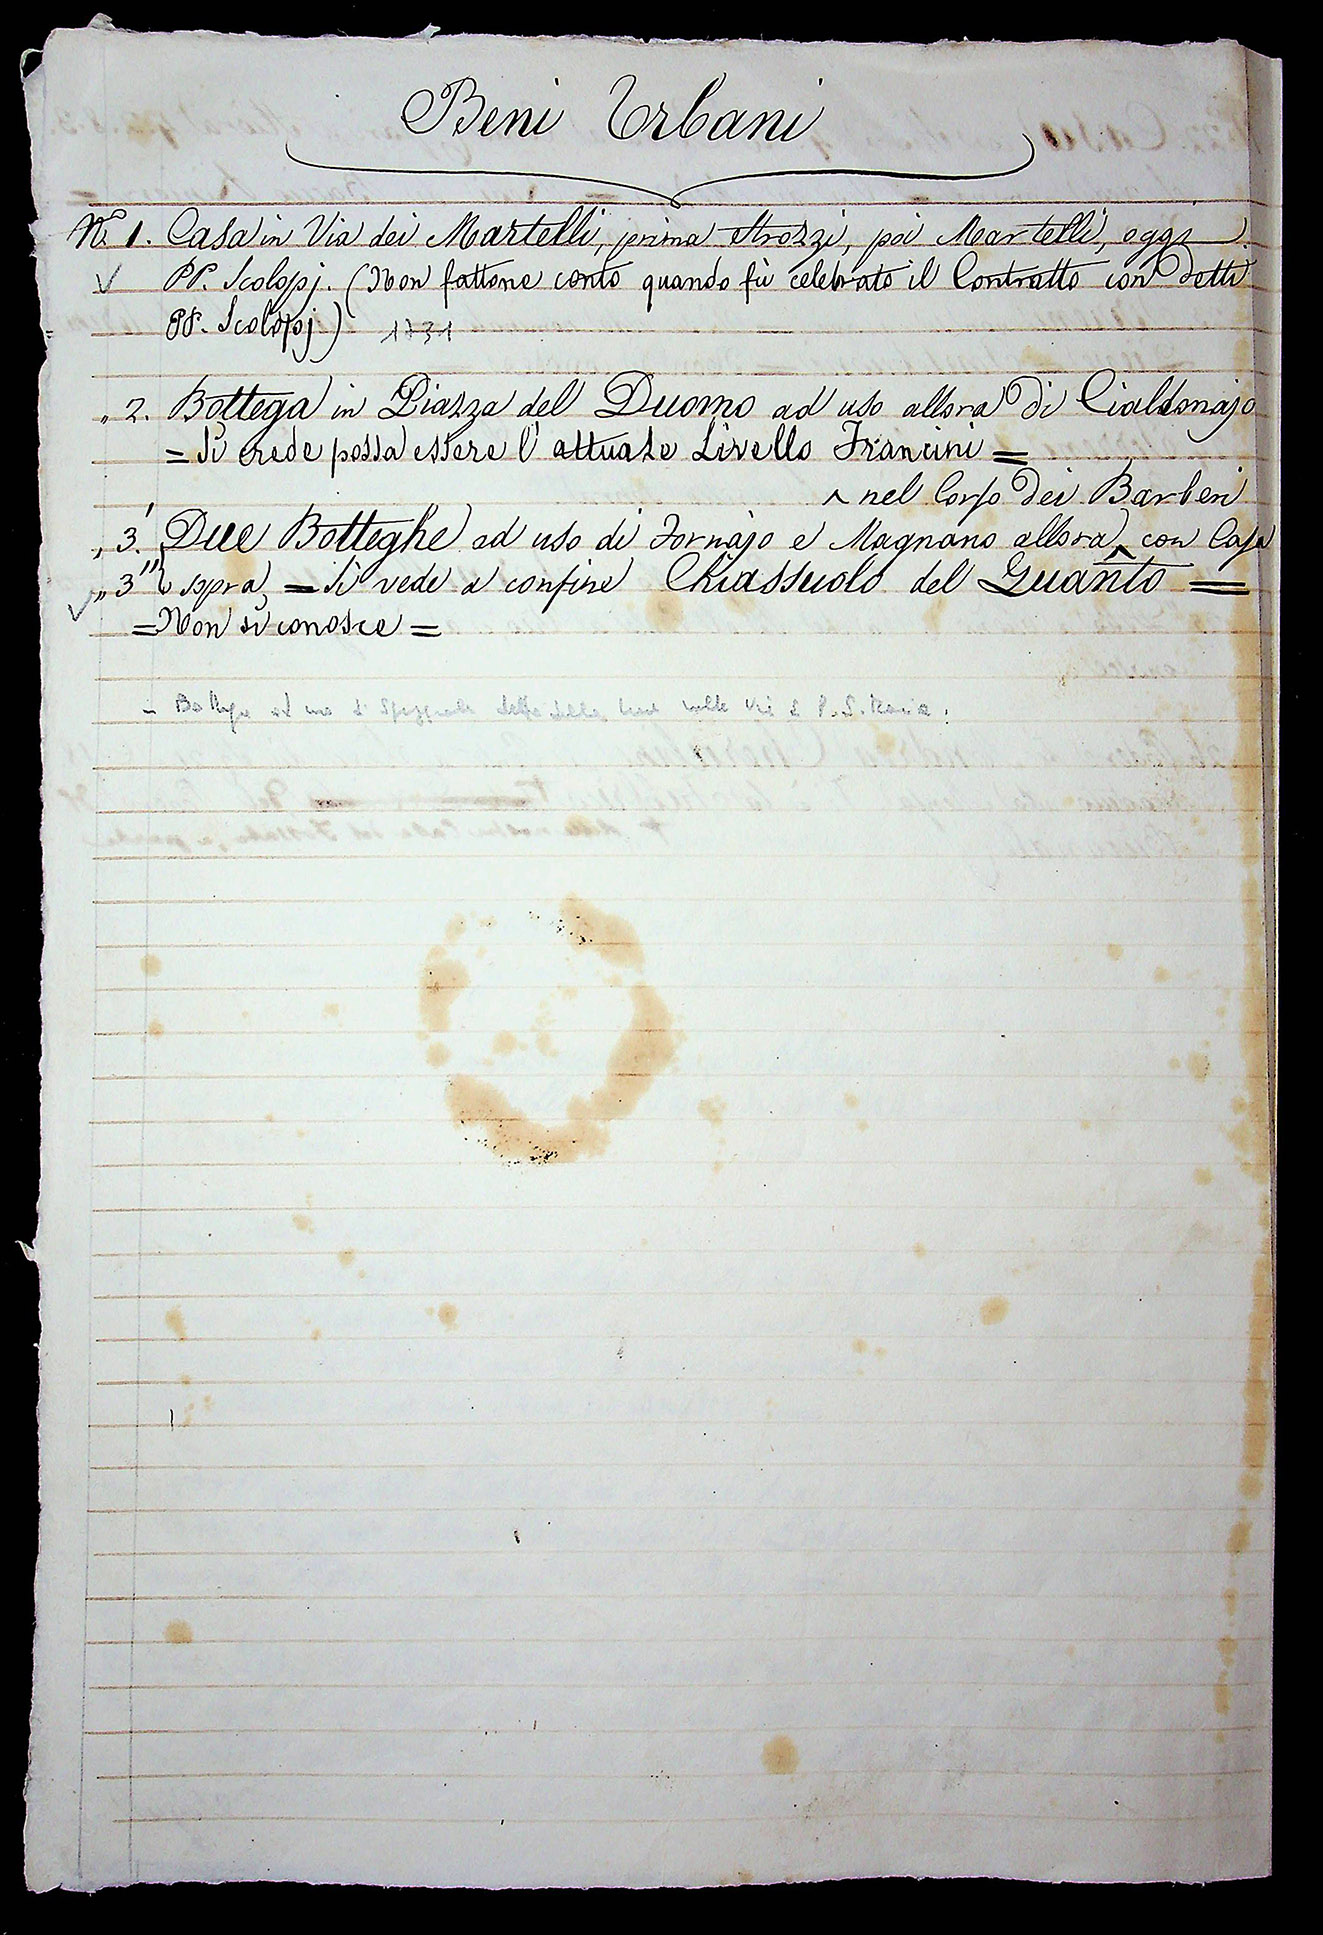 Beni Urbani
N.° 1. Casa in Via dei Martelli, prima Strozzi, poi Martelli, oggi
PP. Scolopj. (Non fattone conto quando fù celebrato il Contratto con detti
PP. Scolopj) 1731
„ 2. Bottega in Piazza del Duomo ad uso allora di Cialdonajo
= Si crede possa essere l'attuale Livello Francini =
^ nel Corso dei Barberi
„ 3.' Due Botteghe ad uso di Fornajo e Magnano allora ^ con Casa
„ 3" sopra, = Si vede a confine Chiassuolo del Guanto =
= Non si conosce =
- Bottega ad uso di Speziale della Via